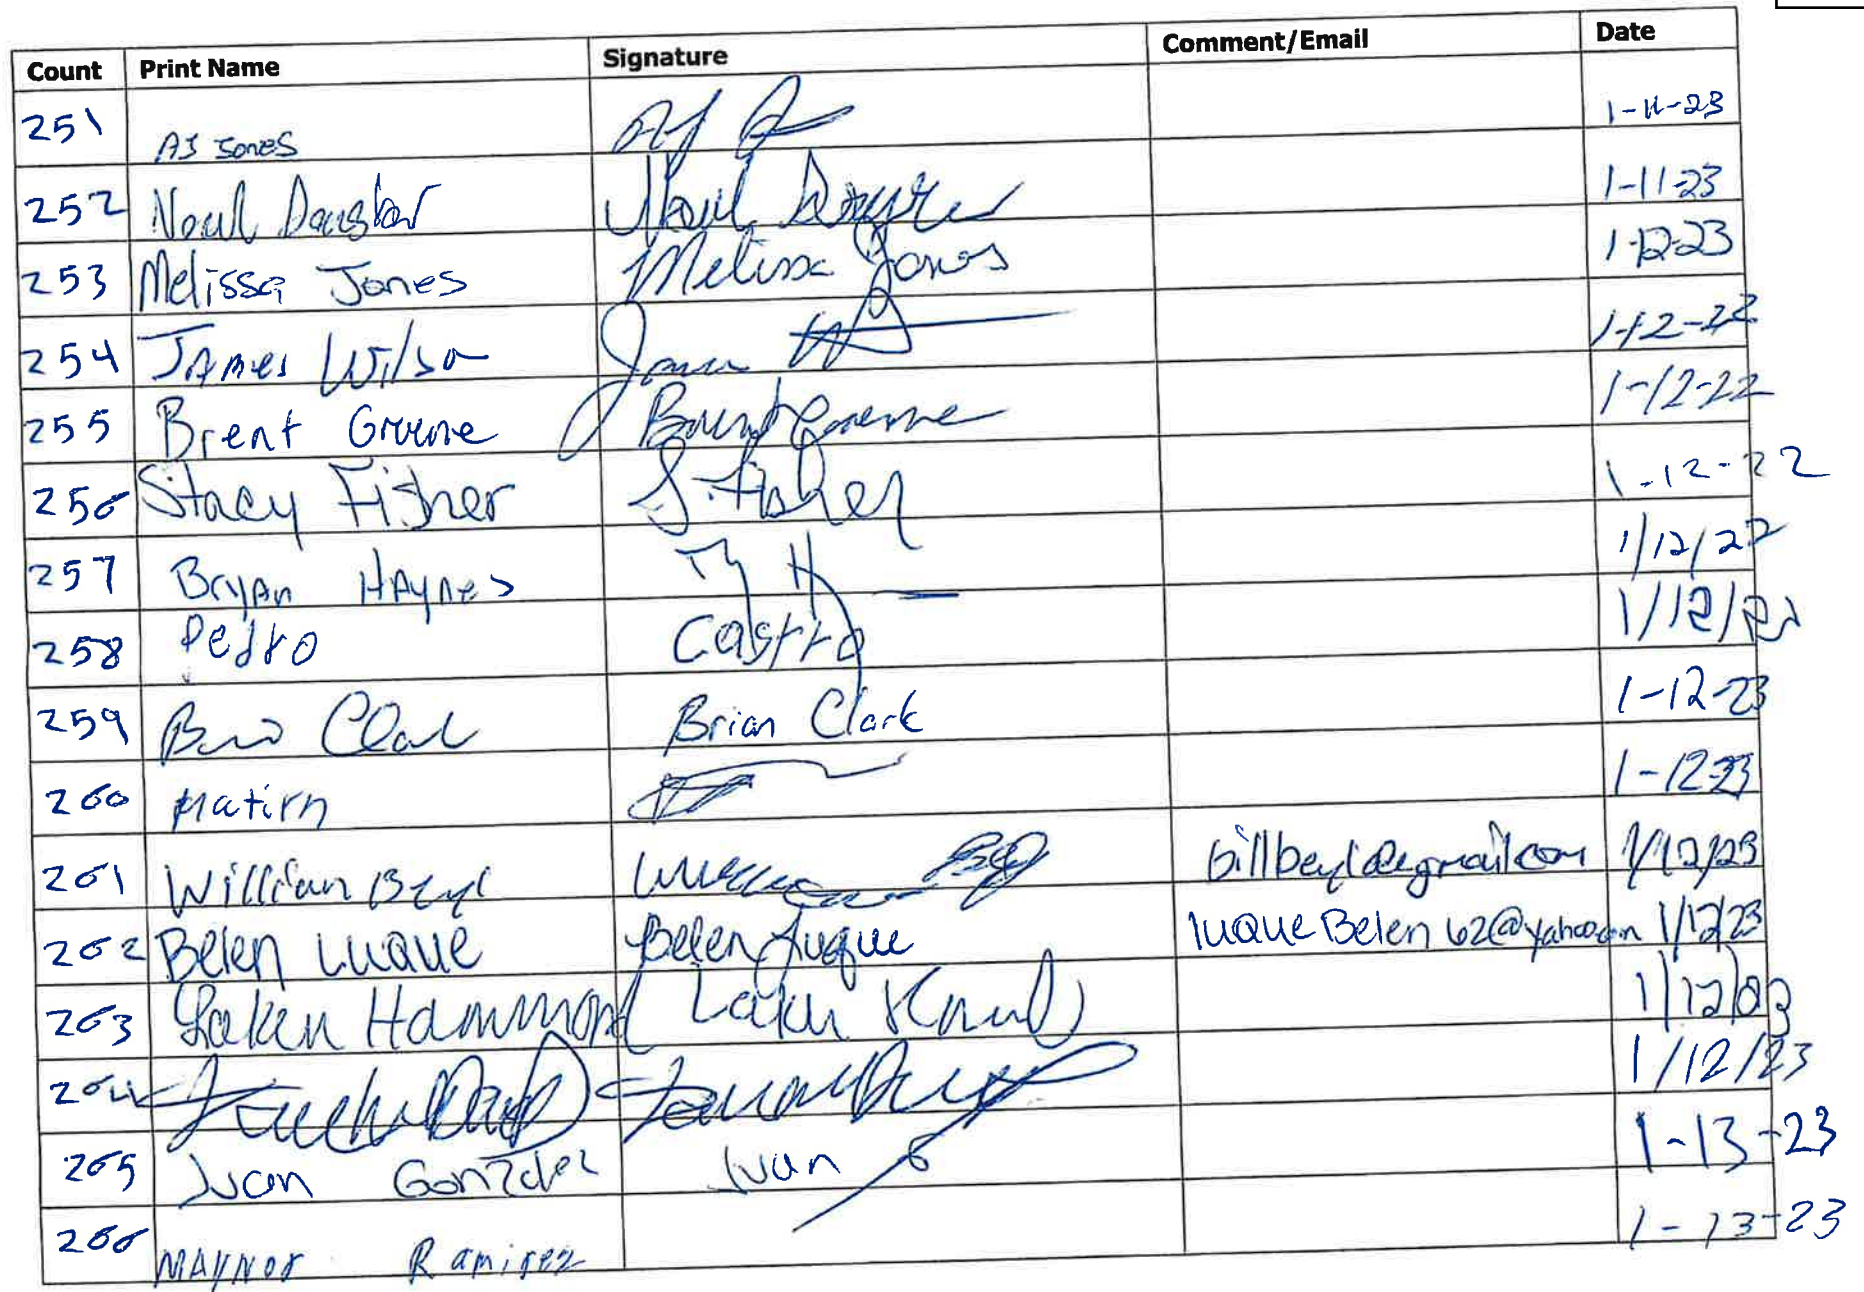 Count Print Name Signature Comment/Email Date
251 AJ Jones AJ J 1-11-23
252 Noul 1-11-23
253 Melissa Jones Melissa Jones 1-12-23
254 James Wilson 1-12-22
255 Brent Greene Brent Greene 1-12-22
256 Stacy Fisher S. Fisher 1-12-22
257 Bryan Haynes 1/12/22
258 Pedro Castro 1/12/22
259 Clark Brian Clark 1-12-23
260 Matirn 1-12-23
261 William 1/12/23
262 Belen Luque Belen Luque luqueBelen62@yahoo.com 1/12/23
263 Laken Hammond Laken 1/12/23
264 1/12/23
265 Juan Gonzalez Juan G 1-13-23
266 Maynor Ramirez 1-13-23